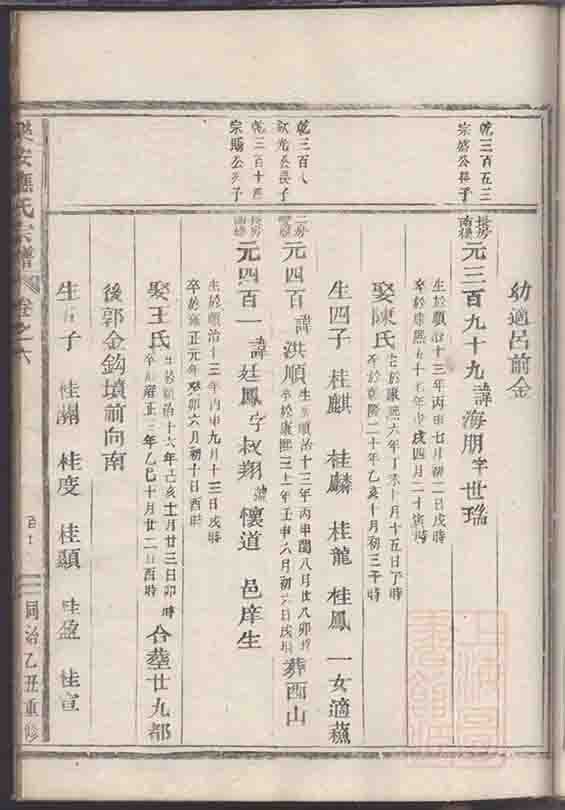 乾三百五三
宗盛公長子
乾三百八
欽光公長子
乾三百十
宗賜公 子
幼適呂前金
長房
元三百九十九諱海朋字世瑤
生於順治十三年丙申七月初二日戌時
卒於康熙五十七年戊戌四月二十 寅時
娶陳氏
生於康熙六年丁未十月十五日丁時
卒於乾隆二十年乙亥十月初三 午時
生四子 桂麒 桂麟 桂龍 桂鳳 一女適蘇
二房
元四百諱洪順
生於順治十三年丙申閏 月廿八卯時
卒於康熙三十一年壬申六月初六日戌時
葬西山
長房
元四百一諱廷鳳字叔翔號懷道 邑庠生
生於順治十三年丙申九月十三日戌時
卒於雍正元年癸卯六月初十日酉時
娶王氏
生於順治十六年己亥十月廿三日卯時
卒於雍正三年乙巳十月廿二日酉時
合塟廿九都
後郭金鈎墳前向南
生 子 桂 桂度 桂顯 桂盈 桂宣
樂安應氏宗譜 卷之六
同治乙丑重修
上海圖書館藏